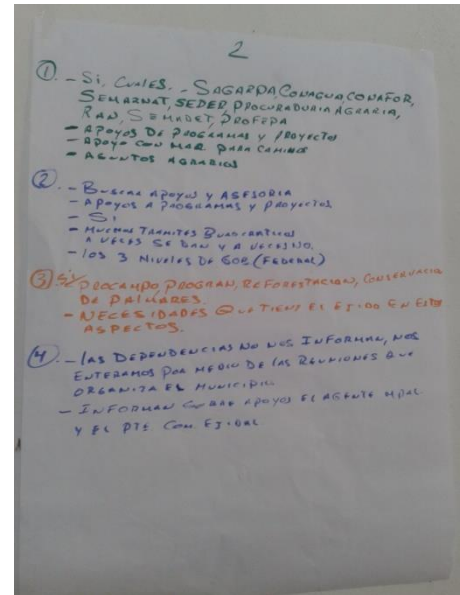 2
① - Si, CUALES. - SAGARPA, CONAGUA, CONAFOR,
SEMARNAT, SEDER, PROCURADURIA AGRARIA,
RAN, SEMADET, PROFEPA
- APOYOS DE PROGRAMAS Y PROYECTOS
- APOYO CON MAQ. PARA CAMINOS
- ASUNTOS AGRARIOS
② - BUSCAR APOYOS Y ASESORIA
- APOYOS A PROGRAMAS Y PROYECTOS
- SI
- MUCHOS TRAMITES BUROCRATICOS
A VECES SE DAN Y A VECES NO.
- LOS 3 NIVELES DE GOB (FEDERAL)
③ SI/ PROCAMPO, PROGRAN, REFORESTACION, CONSERVACION
DE PALMARES.
- NECESIDADES QUE TIENE EL EJIDO EN ESTOS
ASPECTOS.
④ - LAS DEPENDENCIAS NO NOS INFORMAN, NOS
ENTERAMOS POR MEDIO DE LAS REUNIONES QUE
ORGANIZA EL MUNICIPIO
- INFORMAN SOBRE APOYOS EL AGENTE MPAL
Y EL PTE COM. EJIDAL